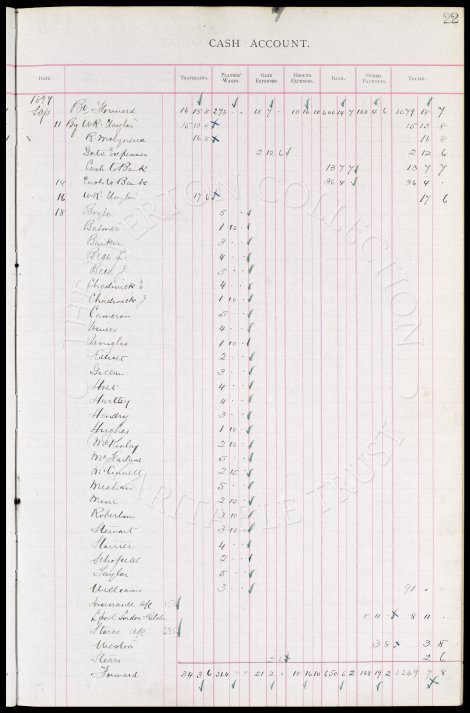 22
CASH ACCOUNT.
DATE. TRAVELLING. PLAYERS' WAGES. GATE EXPENSES. GROUND EXPENSES. BANK. OTHER PAYMENTS. TOTALS.
1897
Sep Bt Forward 16 15 8 18 7 1079 18 7
11 By W.R. Clayton 15 13 8 15 13 8
R. Molyneux 16 8 16 8
Gate Expenses 2 12 6 2 12 6
Cash to Bank 13 7 7 13 7 7
14 Cash to Bank 36 4 36 4 -
16 W.R. Clayton 17 6 17 6
18 Boyle 5 - -
Balmer 1 10 -
Barker 3 - -
Bell L. 4 - -
Bell J. 5 - -
Chadwick E 4 - -
Chadwick J 1 10 -
Cameron 5 - -
4 - -
Douglas 1 10 -
Elliott 2 - -
3 - -
Holt 4 - -
Hartley 4 - -
Hendry 3 - -
Hughes 1 10 -
McKinlay 2 10 -
McFarlane 5 - -
McConnell 2 15 -
Meehan 5 - -
Muir 2 10 -
Robertson 3 10 -
Stewart 3 10 -
Storrier 4 - -
Schofield 2 - -
Taylor 5 - -
Williams 3 - - 91 - -
Insurance a/c
8 11 - 8 11 -
Stores a/c
Weston 3 8 3 8
2 6 2 6
Forward 34 3 6 21 2 10 16 10 650 6 2 168 19 2 1249 7 8
THE EVERTON COLLECTION
CHARITABLE TRUST